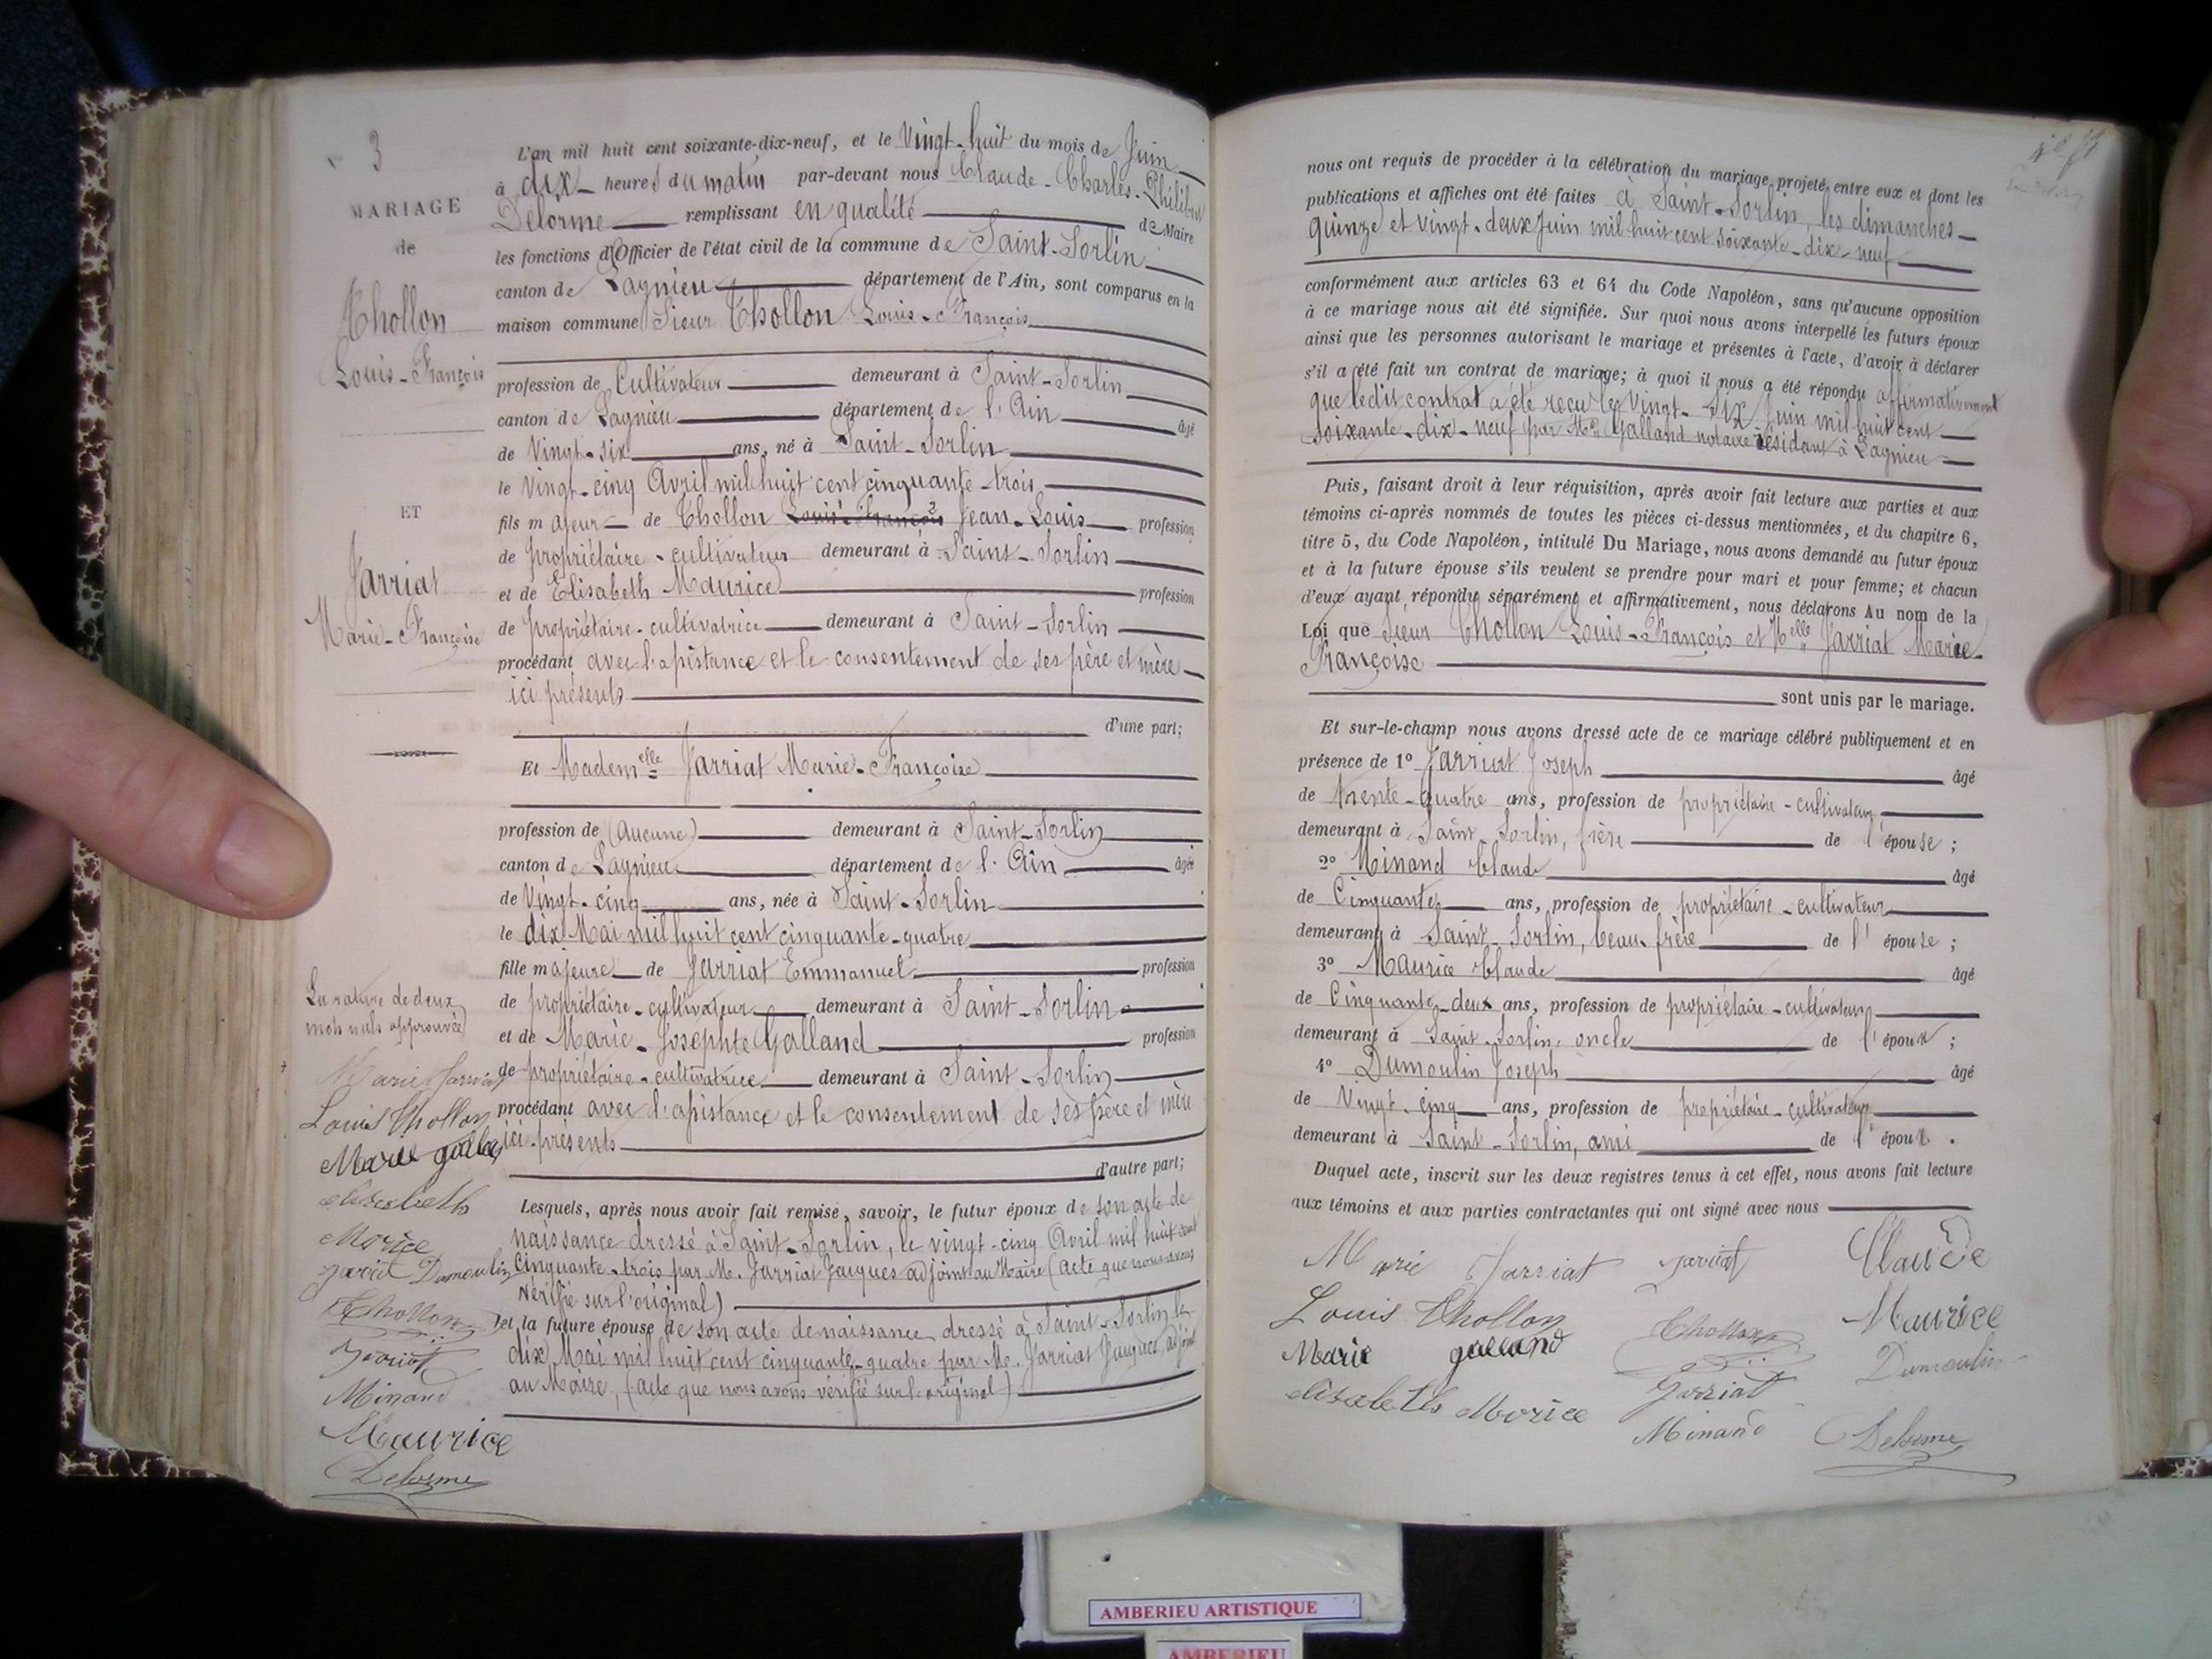 N° 3
MARIAGE
de
Thollon
Louis-François
ET
Jarriat
Marie-Françoise
La rature de deux
mots nuls approuvée
Marie Jarriat
Louis Thollon
Marie galland
elisabeth
Morice
jarriat Dumoulin
Thollon
Jarriat
Minand
Maurice
Delorme
L'an mil huit cent soixante-dix-neuf, et le Vingt-huit du mois de Juin
à dix heures du matin par-devant nous Claude-Charles-Philibert
Delorme remplissant en qualité de Maire
les fonctions d'Officier de l'état civil de la commune de Saint-Sorlin
canton de Lagnieu département de l'Ain, sont comparus en la
maison commune Sieur Thollon Louis-François
profession de Cultivateur demeurant à Saint-Sorlin
canton de Lagnieu département de l'Ain âgé
de Vingt-six ans, né à Saint-Sorlin
le Vingt-cinq Avril mil huit cent cinquante-trois
fils majeur de Thollon Louis-François Jean-Louis profession
de propriétaire-cultivateur demeurant à Saint-Sorlin
et de Elisabeth Maurice profession
de propriétaire-cultivatrice demeurant à Saint-Sorlin
procédant avec l'assistance et le consentement de ses père et mère
ici présents
d'une part;
Et Mademelle Jarriat Marie-Françoise
profession de (Aucune) demeurant à Saint-Sorlin
canton de Lagnieu département de l'Ain âgée
de Vingt-cinq ans, née à Saint-Sorlin
le dix Mai mil huit cent cinquante-quatre
fille majeure de Jarriat Emmanuel profession
de propriétaire-cultivateur demeurant à Saint-Sorlin
et de Marie-Josephte Galland profession
de propriétaire-cultivatrice demeurant à Saint-Sorlin
procédant avec l'assistance et le consentement de ses père et mère
ici présents
d'autre part;
Lesquels, après nous avoir fait remise, savoir, le futur époux de son acte de
naissance dressé à Saint-Sorlin, le vingt-cinq Avril mil huit cent
Cinquante-trois par M. Jarriat Jacques adjoint au Maire (acte que nous avons
vérifié sur l'original)
et la future épouse de son acte de naissance dressé à Saint-Sorlin le
dix Mai mil huit cent cinquante-quatre par M. Jarriat Jacques, adjoint
au Maire, (acte que nous avons vérifié sur l'original)
nous ont requis de procéder à la célébration du mariage projeté entre eux et dont les
publications et affiches ont été faites à Saint-Sorlin les dimanches
quinze et vingt-deux Juin mil huit cent soixante-dix-neuf
conformément aux articles 63 et 64 du Code Napoléon, sans qu'aucune opposition
à ce mariage nous ait été signifiée. Sur quoi nous avons interpellé les futurs époux
ainsi que les personnes autorisant le mariage et présentes à l'acte, d'avoir à déclarer
s'il a été fait un contrat de mariage; à quoi il nous a été répondu affirmativement
que ledit contrat a été reçu le Vingt-Six Juin mil huit cent
soixante-dix-neuf par Me Galland notaire résidant à Lagnieu
Puis, faisant droit à leur réquisition, après avoir fait lecture aux parties et aux
témoins ci-après nommés de toutes les pièces ci-dessus mentionnées, et du chapitre 6,
titre 5, du Code Napoléon, intitulé Du Mariage, nous avons demandé au futur époux
et à la future épouse s'ils veulent se prendre pour mari et pour femme; et chacun
d'eux ayant répondu séparément et affirmativement, nous déclarons Au nom de la
Loi que Sieur Thollon Louis-François et Melle Jarriat Marie
Françoise
sont unis par le mariage.
Et sur-le-champ nous avons dressé acte de ce mariage célébré publiquement et en
présence de 1° Jarriat Joseph âgé
de trente-quatre ans, profession de propriétaire-cultivateur
demeurant à Saint-Sorlin, frère de l'épouse;
2° Minand Claude âgé
de Cinquante ans, profession de propriétaire-cultivateur
demeurant à Saint-Sorlin, beau-frère de l'épouse;
3° Maurice Claude âgé
de Cinquante-deux ans, profession de propriétaire-cultivateur
demeurant à Saint-Sorlin, oncle de l'époux;
4° Dumoulin Joseph âgé
de Vingt-cinq ans, profession de propriétaire-cultivateur
demeurant à Saint-Sorlin, ami de l'époux.
Duquel acte, inscrit sur les deux registres tenus à cet effet, nous avons fait lecture
aux témoins et aux parties contractantes qui ont signé avec nous
Marie Jarriat jarriat Claude
Louis Thollon Thollon Maurice
Marie galland Jarriat Dumoulin
elisabeth Morice Minand Delorme
AMBERIEU ARTISTIQUE
AMBERIEU